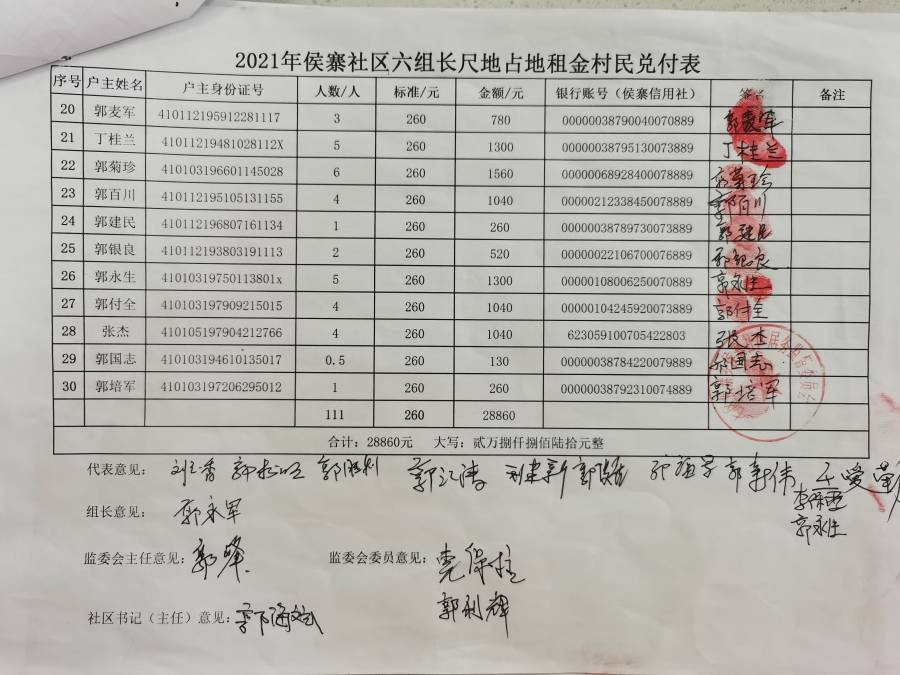 2021年侯寨社区六组长尺地占地租金村民兑付表
序号 户主姓名 户主身份证号 人数/人 标准/元 金额/元 银行账号（侯寨信用社） 备注
20 郭麦军 410112195912281117 3 260 780 00000038790040070889 郭麦军
21 丁桂兰 41011219481028112X 5 260 1300 00000038795130073889 丁桂兰
22 郭菊珍 410103196601145028 6 260 1560 00000068928400078889 郭菊珍
23 郭百川 410112195105131155 4 260 1040 00000212338450078889 郭百川
24 郭建民 410112196807161134 1 260 260 00000038789730073889 郭建民
25 郭银良 410112193803191113 2 260 520 00000022106700076889 郭银良
26 郭永生 41010319750113801x 5 260 1300 00000108006250070889 郭永生
27 郭付全 410103197909215015 4 260 1040 00000104245920073889 郭付全
28 张杰 410105197904212766 4 260 1040 623059100705422803 张杰
29 郭国志 410103194610135017 0.5 260 130 00000038784220079889 郭国志
30 郭培军 410103197206295012 1 260 260 00000038792310074889 郭培军
111 260 28860
合计：28860元 大写：贰万捌仟捌佰陆拾元整
代表意见：
郭永生
组长意见： 郭永军
监委会主任意见：郭峰 监委会委员意见：
郭利辉
社区书记（主任）意见：